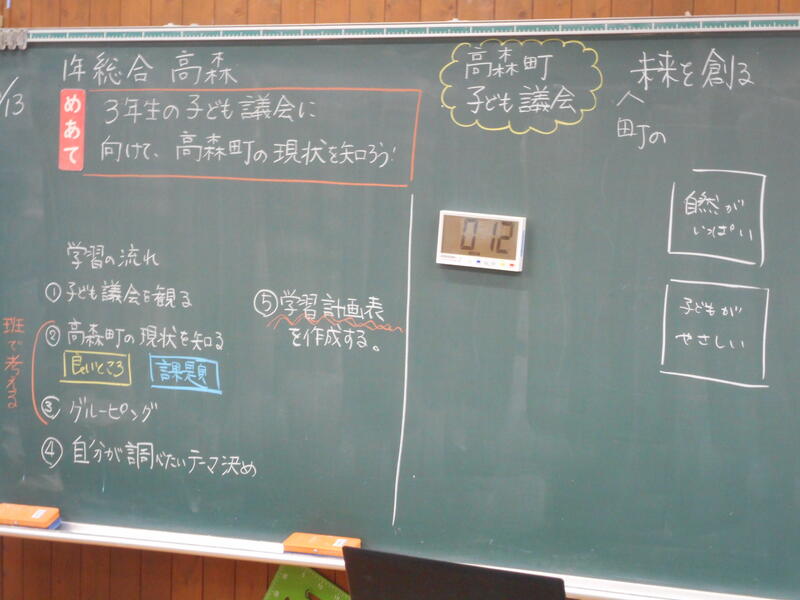 /13
1年総合 高森
めあて
3年生の子ども議会に
向けて、高森町の現状を知ろう!
学習の流れ
①子ども議会を観る
②高森町の現状を知る
良いところ 課題
③グルーピング
④自分が調べたいテーマ決め
班で考える
⑤学習計画表
を作成する。
高森町
子ども議会
未来を創る
町の
0 12
自然が
いっぱい
子どもが
やさしい